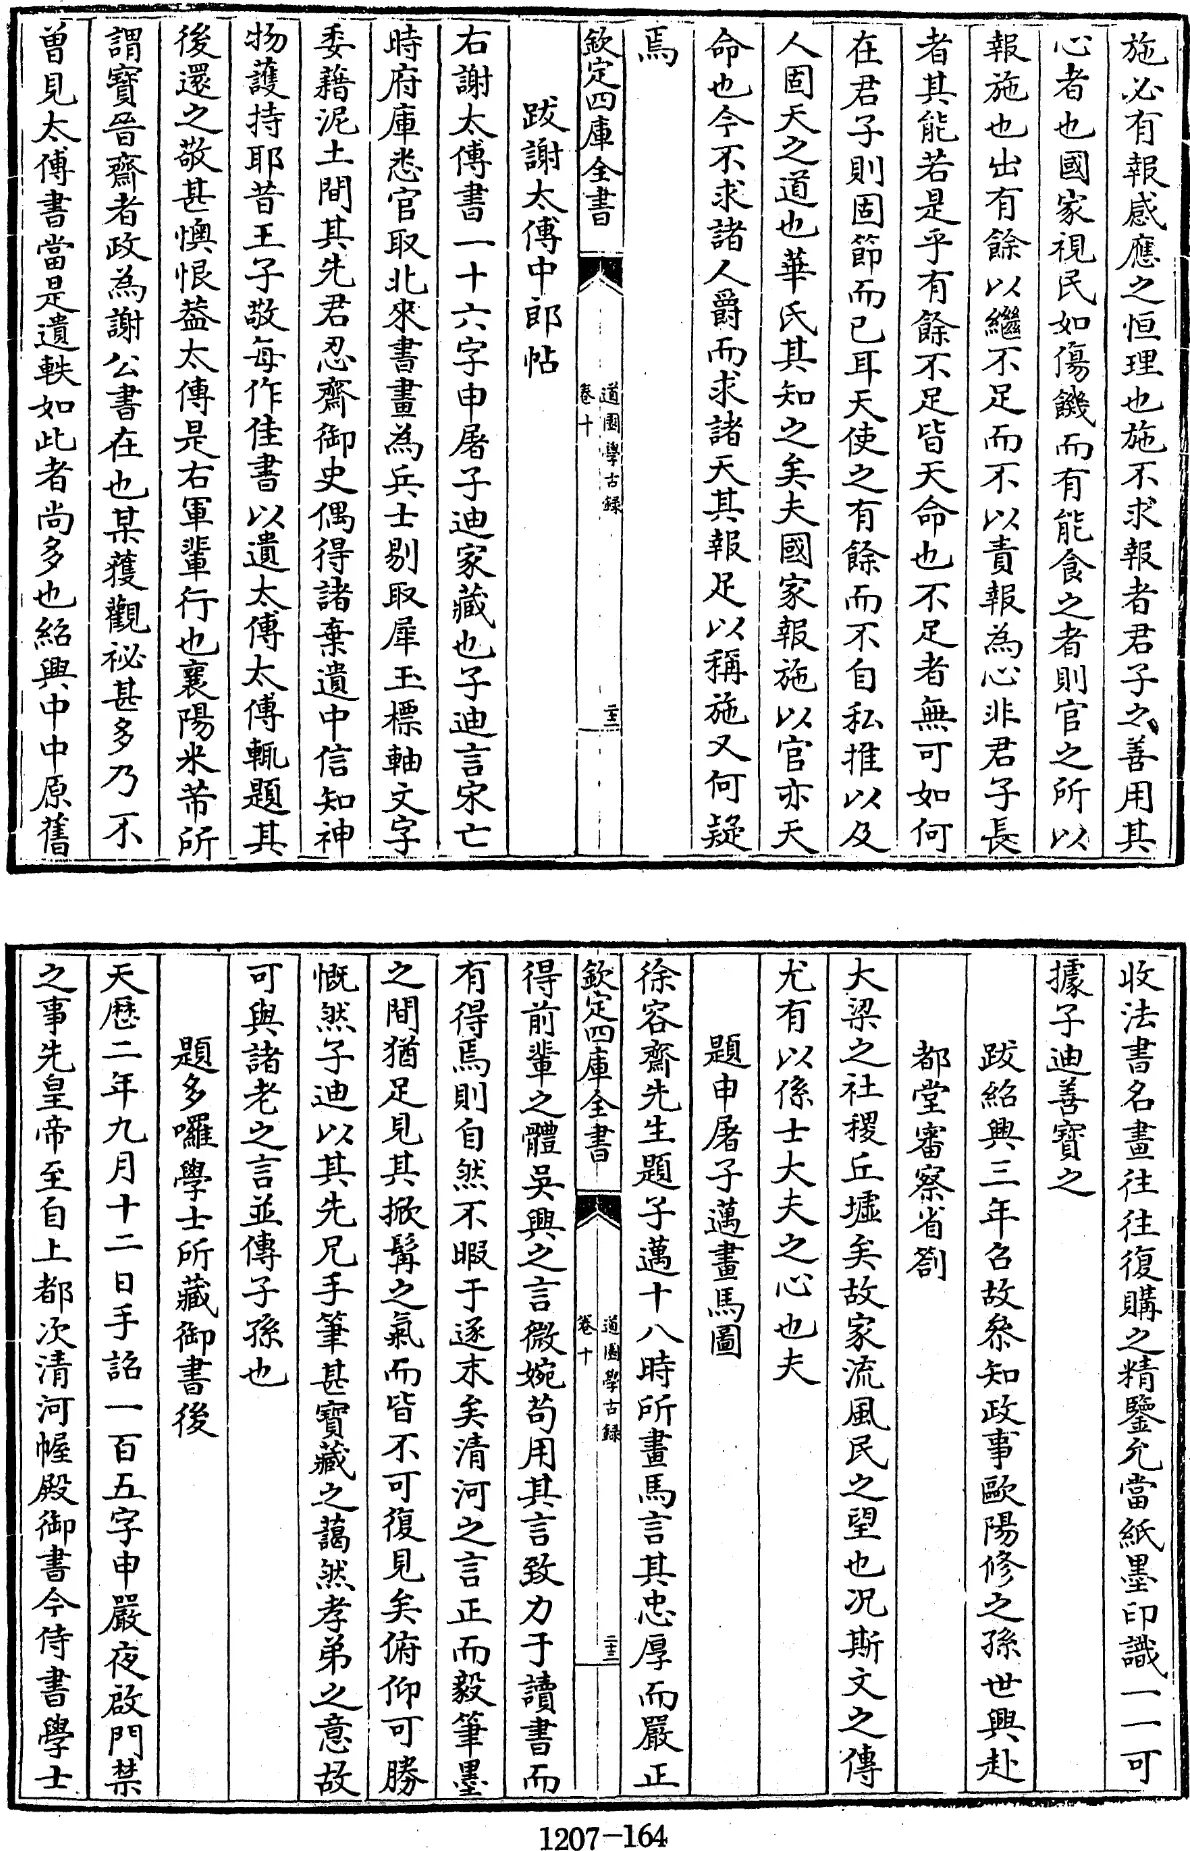 施必有報感應之恒理也施不求報者君子之善用其
心者也國家視民如傷饑而有能食之者則官之所以
報施也出有餘以繼不足而不以責報為心非君子長
者其能若是乎有餘不足皆天命也不足者無可如何
在君子則固節而已耳天使之有餘而不自私推以及
人固天之道也華氏其知之矣夫國家報施以官亦天
命也今不求諸人爵而求諸天其報足以稱施又何疑
焉
欽定四庫全書
道園學古錄
卷十
二十三
跋謝太傅中郎帖
右謝太傅書一十六字申屠子迪家藏也子迪言宋亡
時府庫悉官取北來書畫為兵士剔取犀玉標軸文字
委藉泥土間其先君忍齋御史偶得諸棄遺中信知神
物護持耶昔王子敬每作佳書以遺太傅太傅輒題其
後還之敬甚懊恨葢太傅是右軍輩行也襄陽米芾所
謂寶晉齋者政為謝公書在也某獲觀祕甚多乃不
曽見太傅書當是遺軼如此者尚多也紹興中中原舊
收法書名畫往往復購之精鑒允當紙墨印識一一可
據子迪善寶之
跋紹興三年召故叅知政事歐陽修之孫世興赴
都堂審察省劄
大梁之社稷丘墟矣故家流風民之望也况斯文之傳
尤有以係士大夫之心也夫
題申屠子邁畫馬圖
徐容齋先生題子邁十八時所畫馬言其忠厚而嚴正
欽定四庫全書
道園學古錄
卷十
二十三
得前輩之體吳興之言微婉茍用其言致力于讀書而
有得焉則自然不暇于逐末矣清河之言正而毅筆墨
之間猶足見其掀髯之氣而皆不可復見矣俯仰可勝
慨然子迪以其先兄手筆甚寶藏之藹然孝弟之意故
可與諸老之言並傳子孫也
題多囉學士所藏御書後
天歷二年九月十二日手詔一百五字申嚴夜啟門禁
之事先皇帝至自上都次清河幄殿御書今侍書學士
1207-164